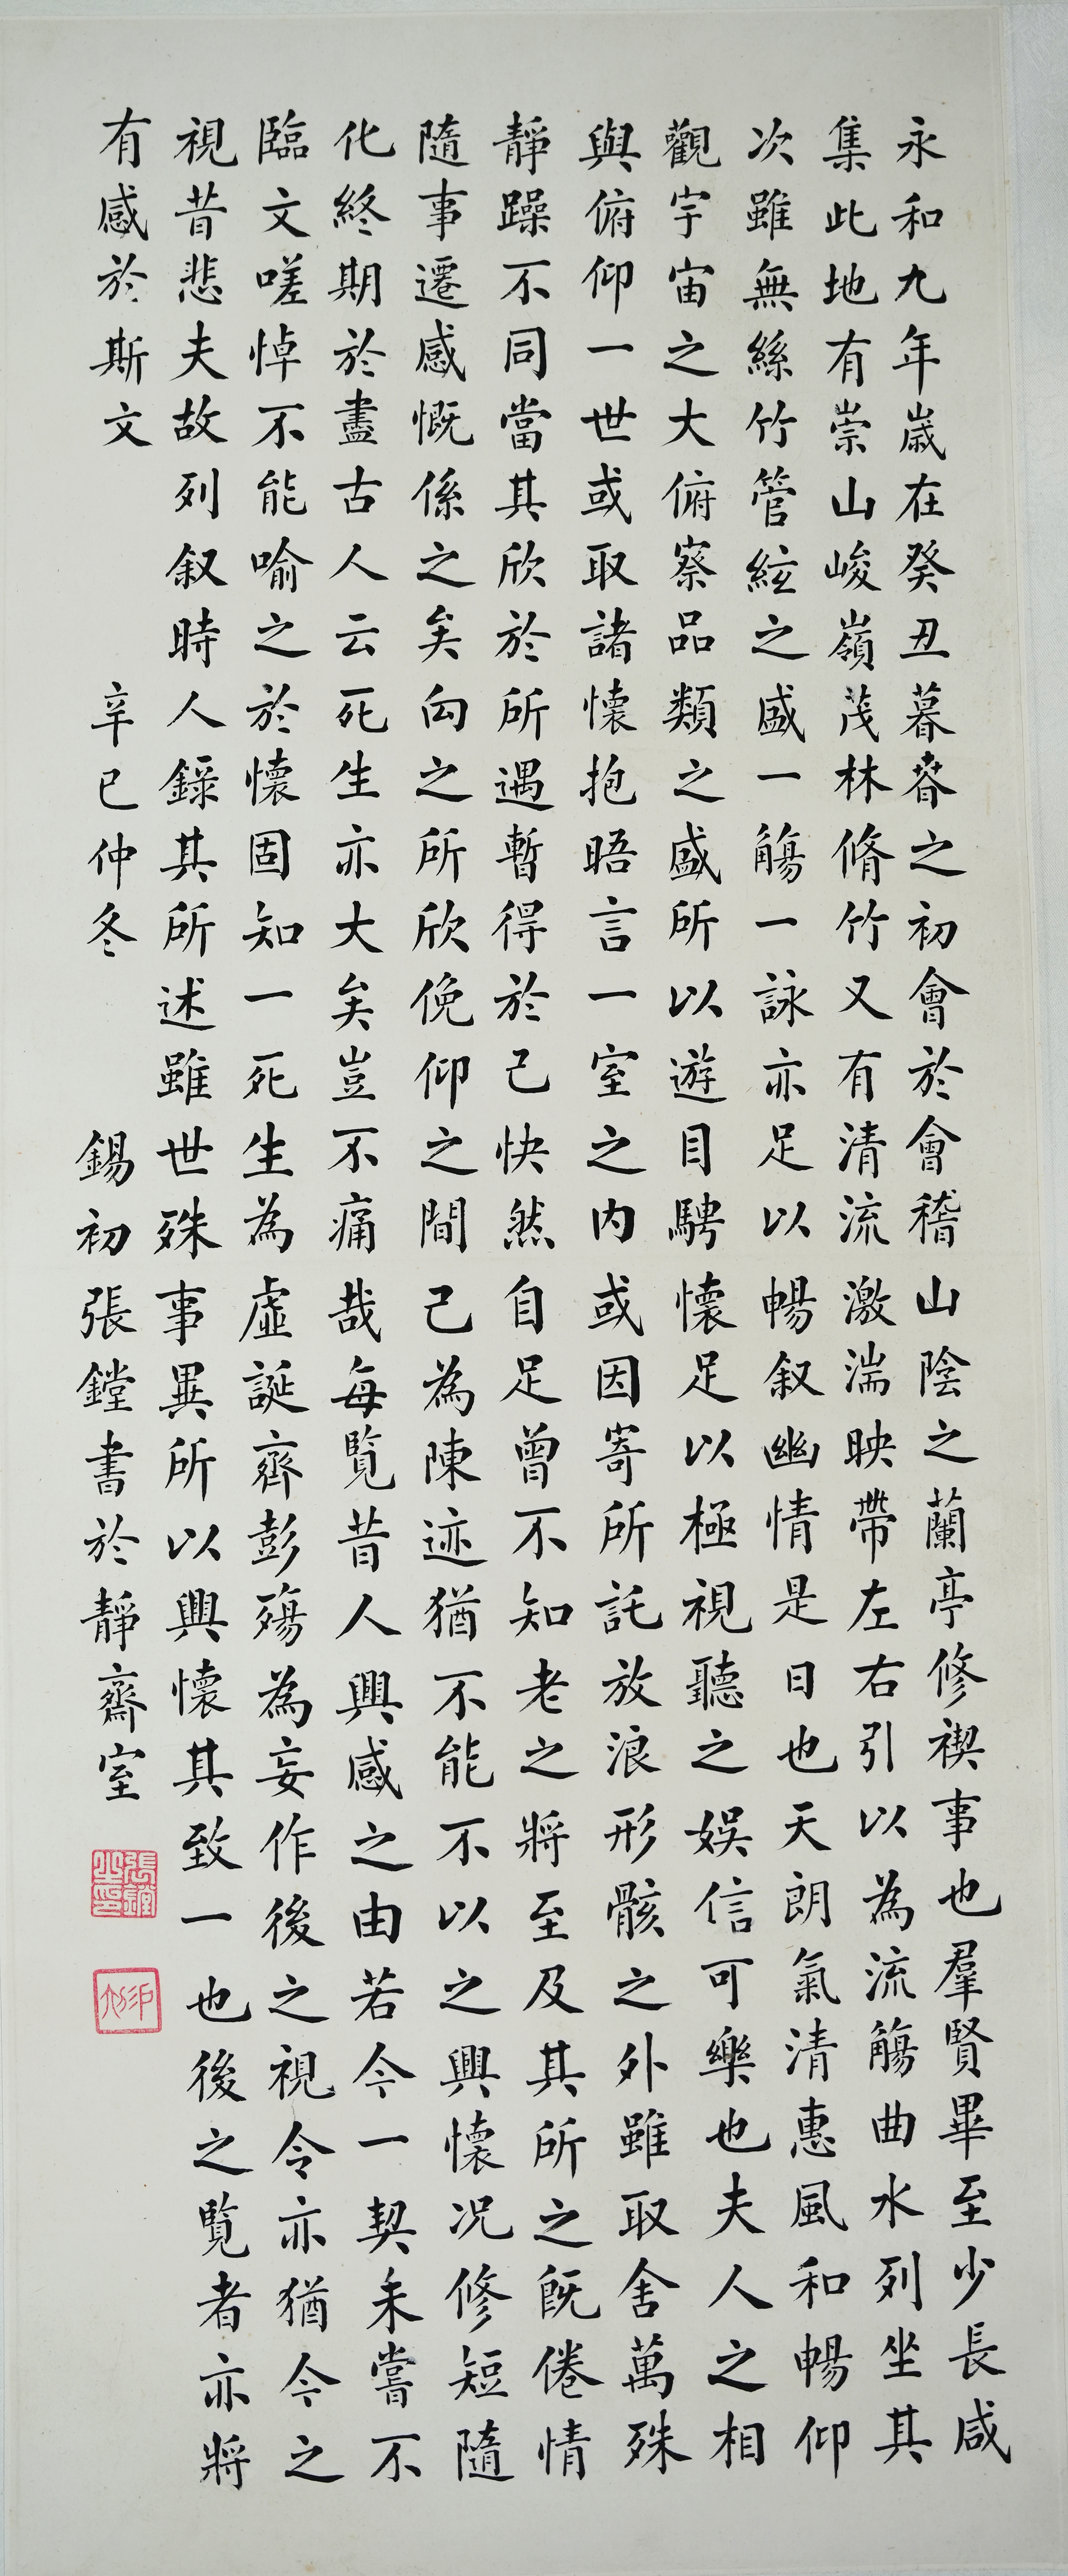 永和九年歲在癸丑暮春之初會於會稽山陰之蘭亭修禊事也羣賢畢至少長咸
集此地有崇山峻嶺茂林脩竹又有清流激湍映帶左右引以為流觴曲水列坐其
次雖無絲竹管絃之盛一觴一詠亦足以暢叙幽情是日也天朗氣清惠風和暢仰
觀宇宙之大俯察品類之盛所以遊目騁懷足以極視聽之娛信可樂也夫人之相
與俯仰一世或取諸懷抱晤言一室之內或因寄所託放浪形骸之外雖取舍萬殊
靜躁不同當其欣於所遇暫得於己快然自足曾不知老之將至及其所之既倦情
隨事遷感慨係之矣向之所欣俛仰之間已為陳迹猶不能不以之興懷况修短隨
化終期於盡古人云死生亦大矣豈不痛哉每覽昔人興感之由若今一契未嘗不
臨文嗟悼不能喻之於懷固知一死生為虛誕齊彭殤為妄作後之視今亦猶今之
視昔悲夫故列叙時人錄其所述雖世殊事異所以興懷其致一也後之覽者亦將
有感於斯文 辛巳仲冬 錫初張鏜書於靜齋室
張鏜之印